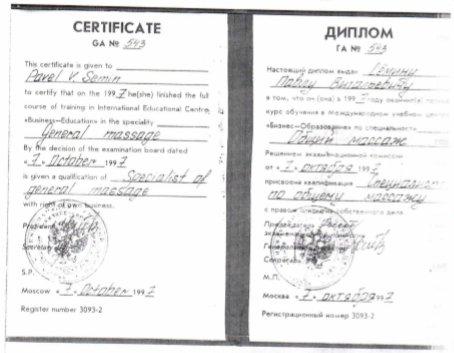 CERTIFICATE
GA № 543
This certificate is given to
Pavel V. Semin
to certify that on the 1997 he(she) finished the full
course of training in International Educational Centre
«Business–Education» in the speciality
General massage
By the decision of the examination board dated
«7» October 1997
is given a qualification of Specialist of
general massage
with right of own business.
President
Secretary
S.P.
Moscow «7» October 1997
Register number 3093-2
ДИПЛОМ
ГА № 543
Настоящий диплом выдан Сёмину
Павлу
в том, что он (она) в 1997 году
курс обучения в Международном учебном
«Бизнес–Образование» по специальности
Общий массаж
Решением экзаменационной комиссии
от «7» октября 1997
присвоена квалификация
по общему массажу
с правом собственного дела
Председатель
Секретарь
М.П.
Москва «7» октября 1997
Регистрационный номер 3093-2